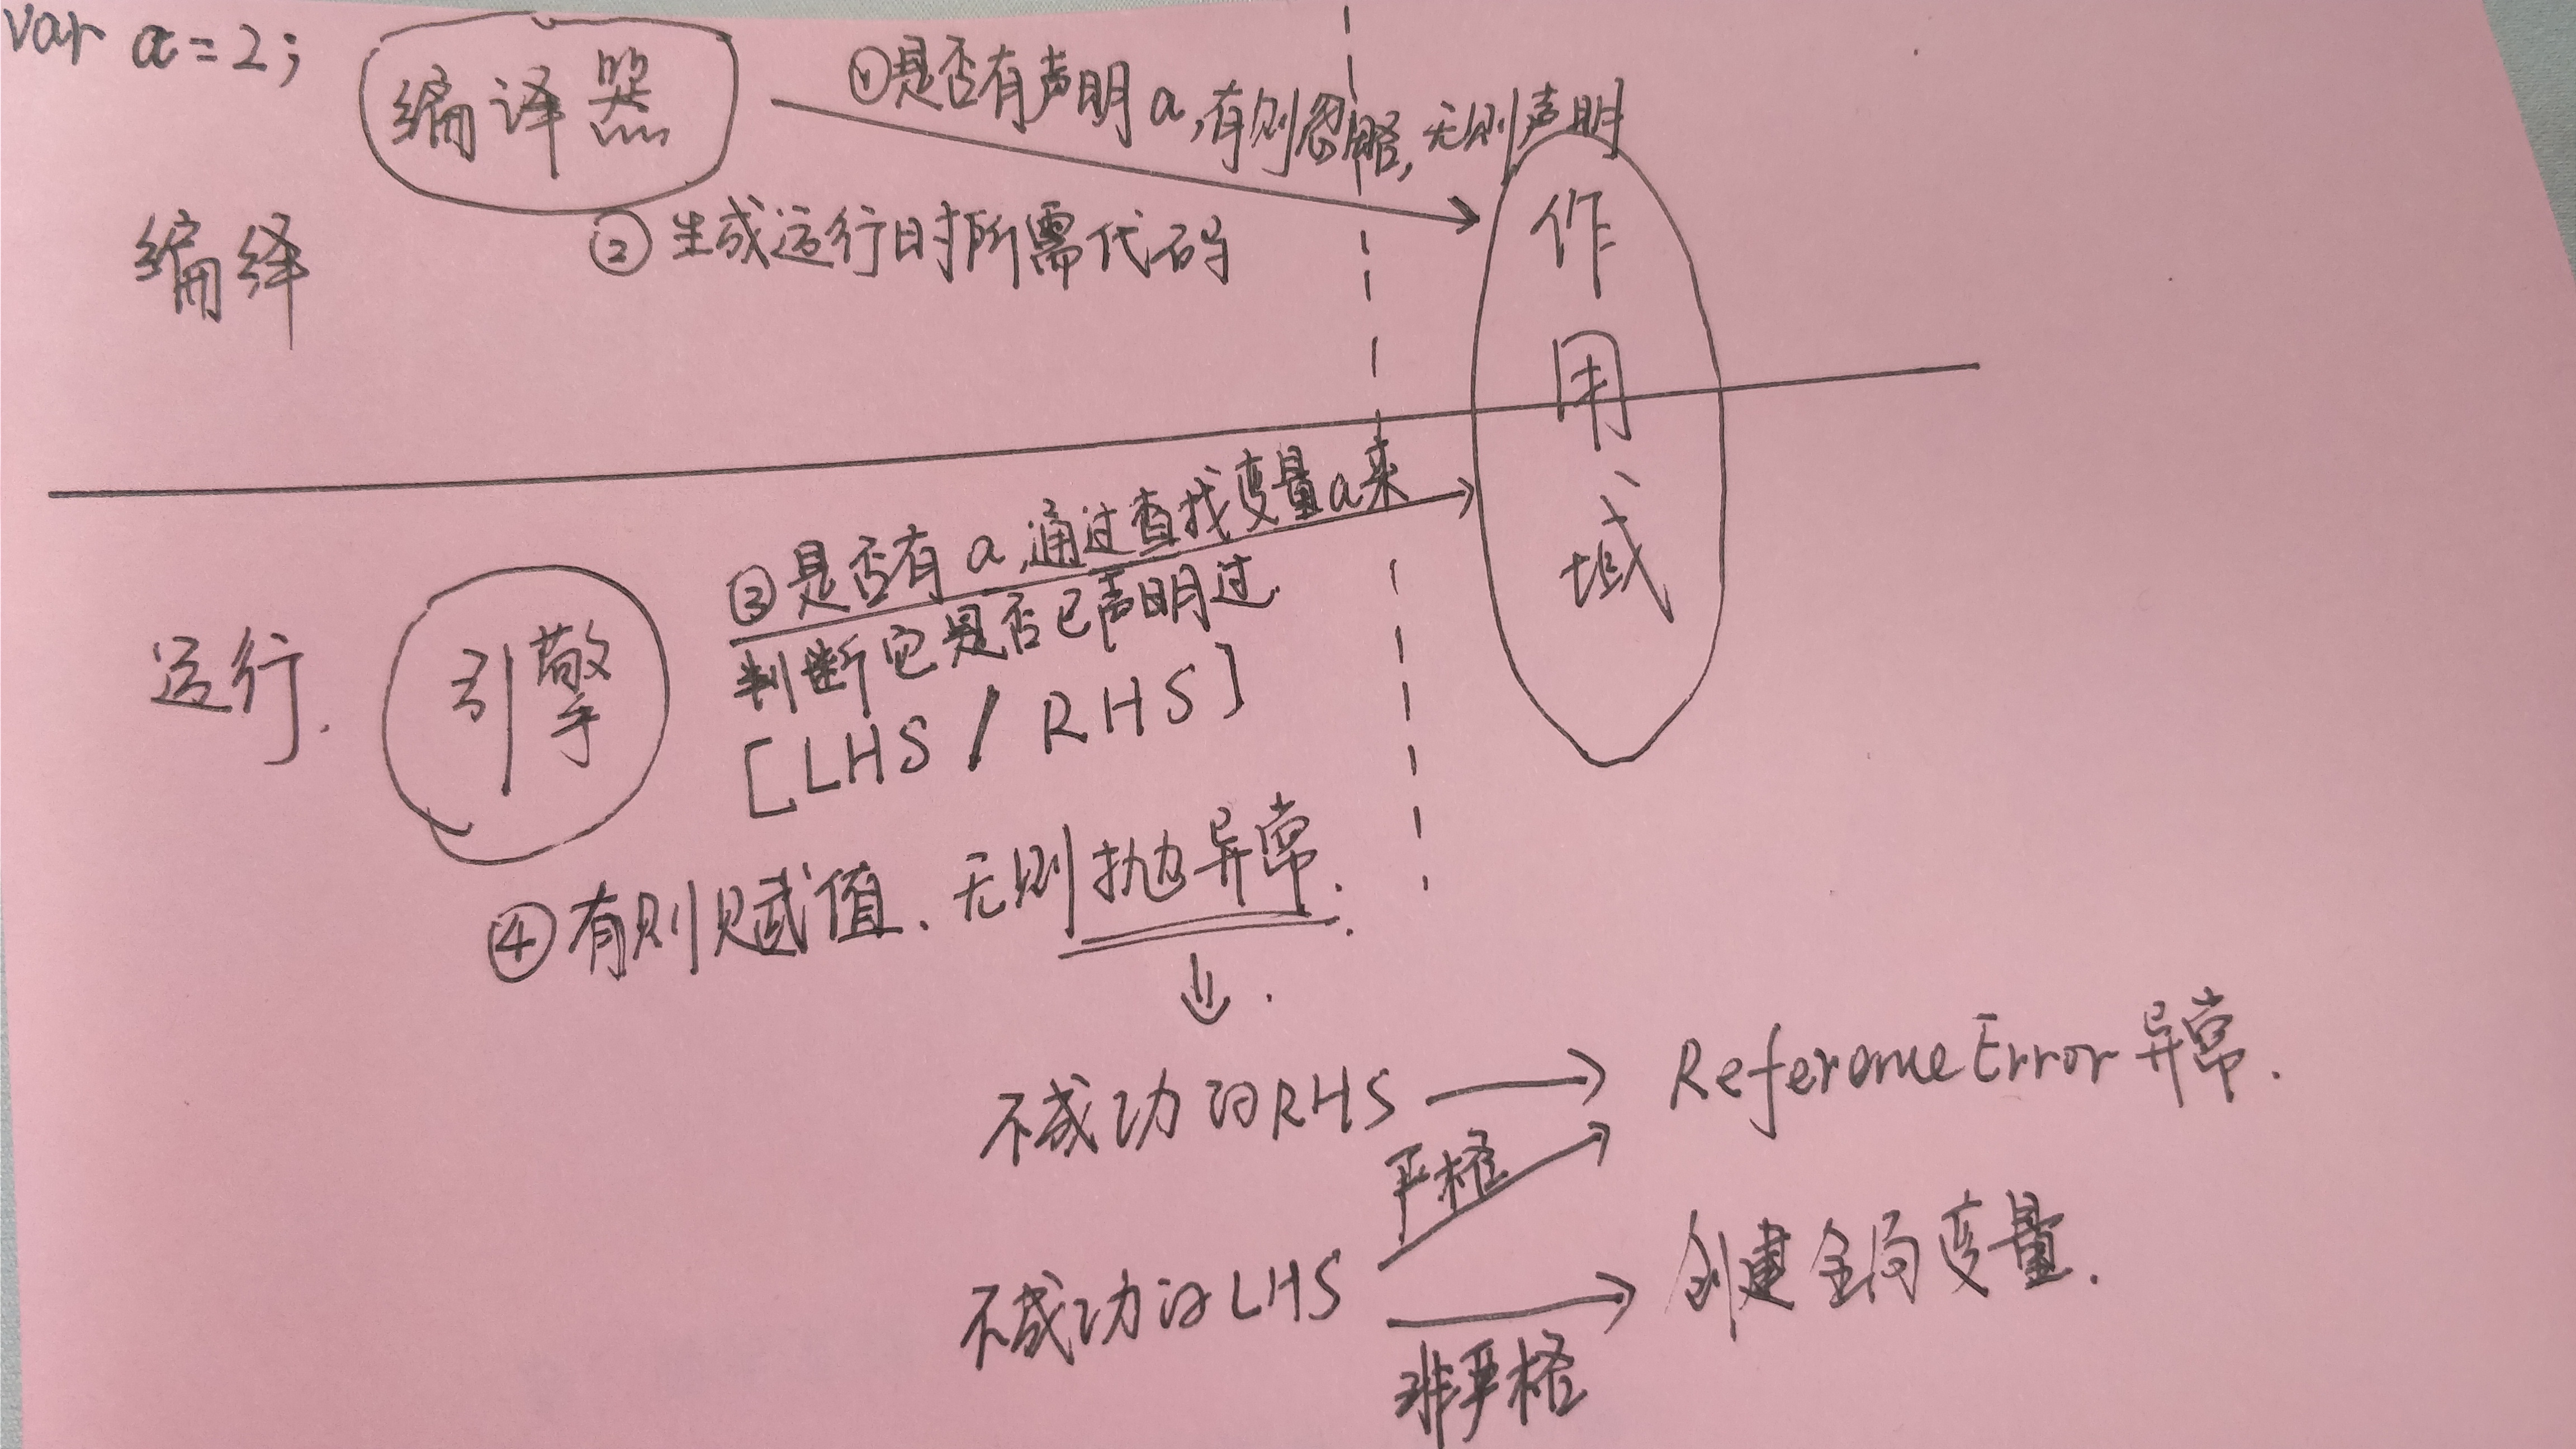 var a=2;
编译器
①是否有声明a,有则忽略,无则声明
②生成运行时所需代码
编绎
作用域
③是否有a,通过查找变量a来
判断它是否已声明过
[LHS/RHS]
运行.
引擎
④有则赋值、无则抛异常.
不成功的RHS
ReferenceError异常.
严格
不成功的LHS
创建全局变量.
非严格